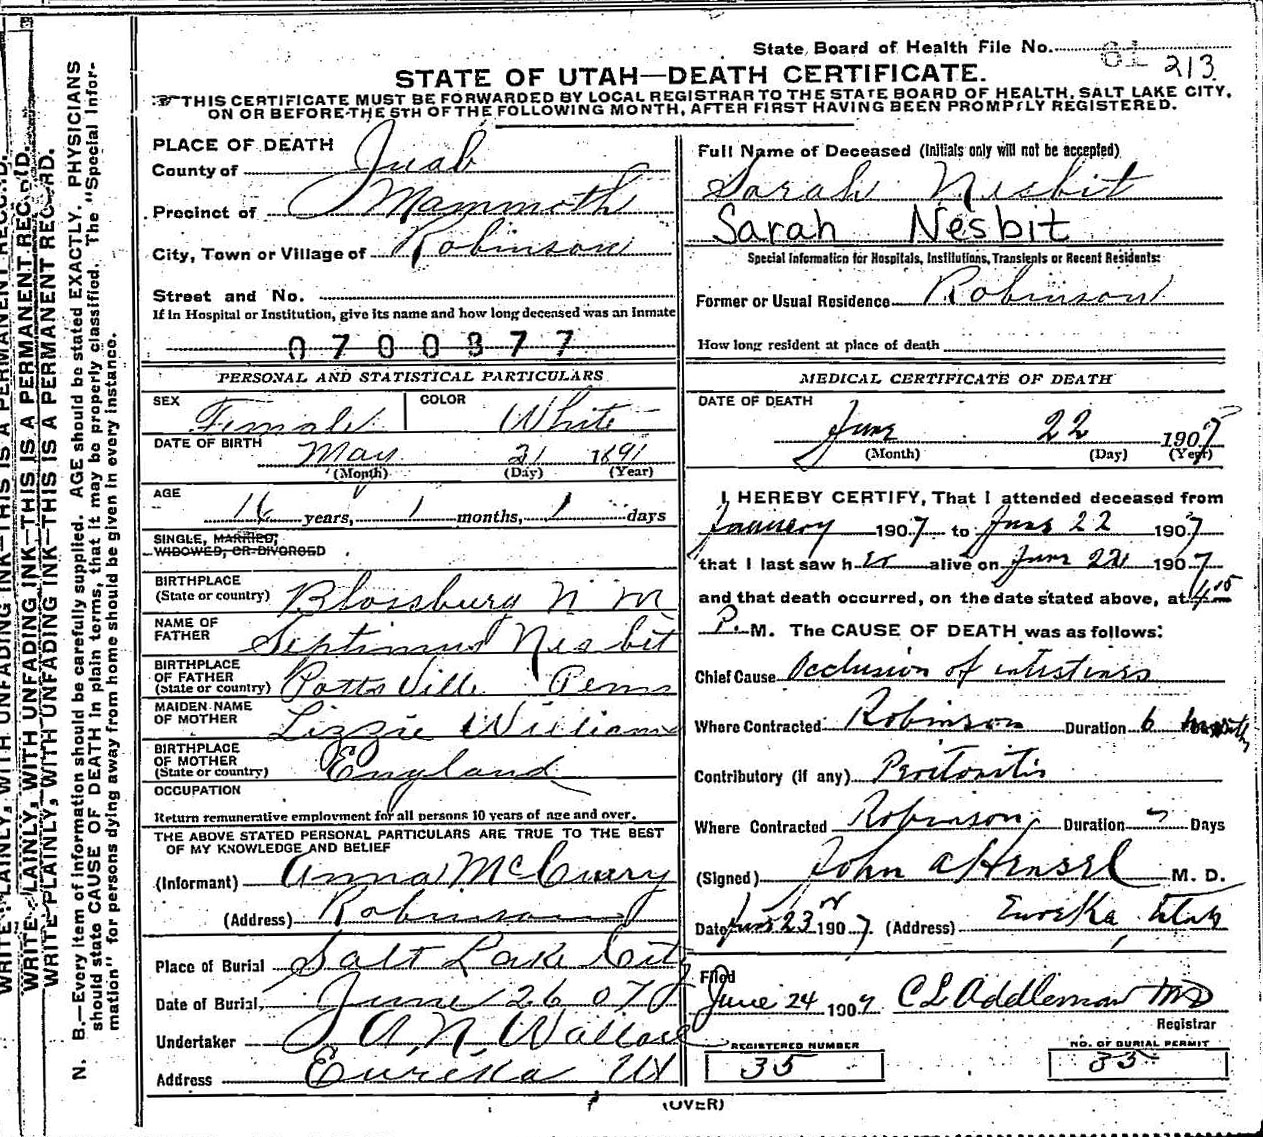 State Board of Health File No. 81 213
STATE OF UTAH—DEATH CERTIFICATE.
THIS CERTIFICATE MUST BE FORWARDED BY LOCAL REGISTRAR TO THE STATE BOARD OF HEALTH, SALT LAKE CITY,
ON OR BEFORE THE 5TH OF THE FOLLOWING MONTH, AFTER FIRST HAVING BEEN PROMPTLY REGISTERED.
PLACE OF DEATH
County of Juab
Precinct of Mammoth
City, Town or Village of Robinson
Street and No.
If in Hospital or Institution, give its name and how long deceased was an Inmate
0700377
PERSONAL AND STATISTICAL PARTICULARS
SEX Female COLOR White
DATE OF BIRTH May 21 1891
(Month) (Day) (Year)
AGE
16 years, 1 months, 1 days
SINGLE, MARRIED,
WIDOWED, OR DIVORCED
BIRTHPLACE
(State or country) Blossburg N M
NAME OF
FATHER Septimus Nesbit
BIRTHPLACE
OF FATHER
(State or country) Potts Ville Penn
MAIDEN NAME
OF MOTHER Lizzie Williams
BIRTHPLACE
OF MOTHER
(State or country) England
OCCUPATION
Return remunerative employment for all persons 10 years of age and over.
THE ABOVE STATED PERSONAL PARTICULARS ARE TRUE TO THE BEST
OF MY KNOWLEDGE AND BELIEF
(Informant) Anna
(Address) Robinson
Place of Burial Salt Lake City
Date of Burial, June 26 07
Undertaker A. N. Wallace
Address Eureka Ut
Full Name of Deceased (Initials only will not be accepted)
Sarah Nesbit
Sarah Nesbit
Special Information for Hospitals, Institutions, Transients or Recent Residents:
Former or Usual Residence Robinson
How long resident at place of death
MEDICAL CERTIFICATE OF DEATH
DATE OF DEATH
June 22 1907
(Month) (Day) (Year)
I HEREBY CERTIFY, That I attended deceased from
January 1907 to June 22 1907
that I last saw her alive on June 22 1907
and that death occurred, on the date stated above, at 4
P. M. The CAUSE OF DEATH was as follows:
Chief Cause Occlusion of intestines
Where Contracted Robinson Duration 6 months
Contributory (if any) Peritonitis
Where Contracted Robinson Duration Days
(Signed) John A Hensel M. D.
Date June 23 1907. (Address) Eureka, Utah
Filed
June 24 1907 C L Addleman MD
Registrar
REGISTERED NUMBER
35
NO. OF BURIAL PERMIT
35
(OVER)
WRITE PLAINLY, WITH UNFADING INK—THIS IS A PERMANENT RECORD.
WRITE PLAINLY, WITH UNFADING INK—THIS IS A PERMANENT RECORD.
WRITE PLAINLY, WITH UNFADING INK—THIS IS A PERMANENT RECORD.
N. B.—Every item of information should be carefully supplied. AGE should be stated EXACTLY. PHYSICIANS
should state CAUSE OF DEATH in plain terms, that it may be properly classified. The "Special Infor-
mation" for persons dying away from home should be given in every instance.